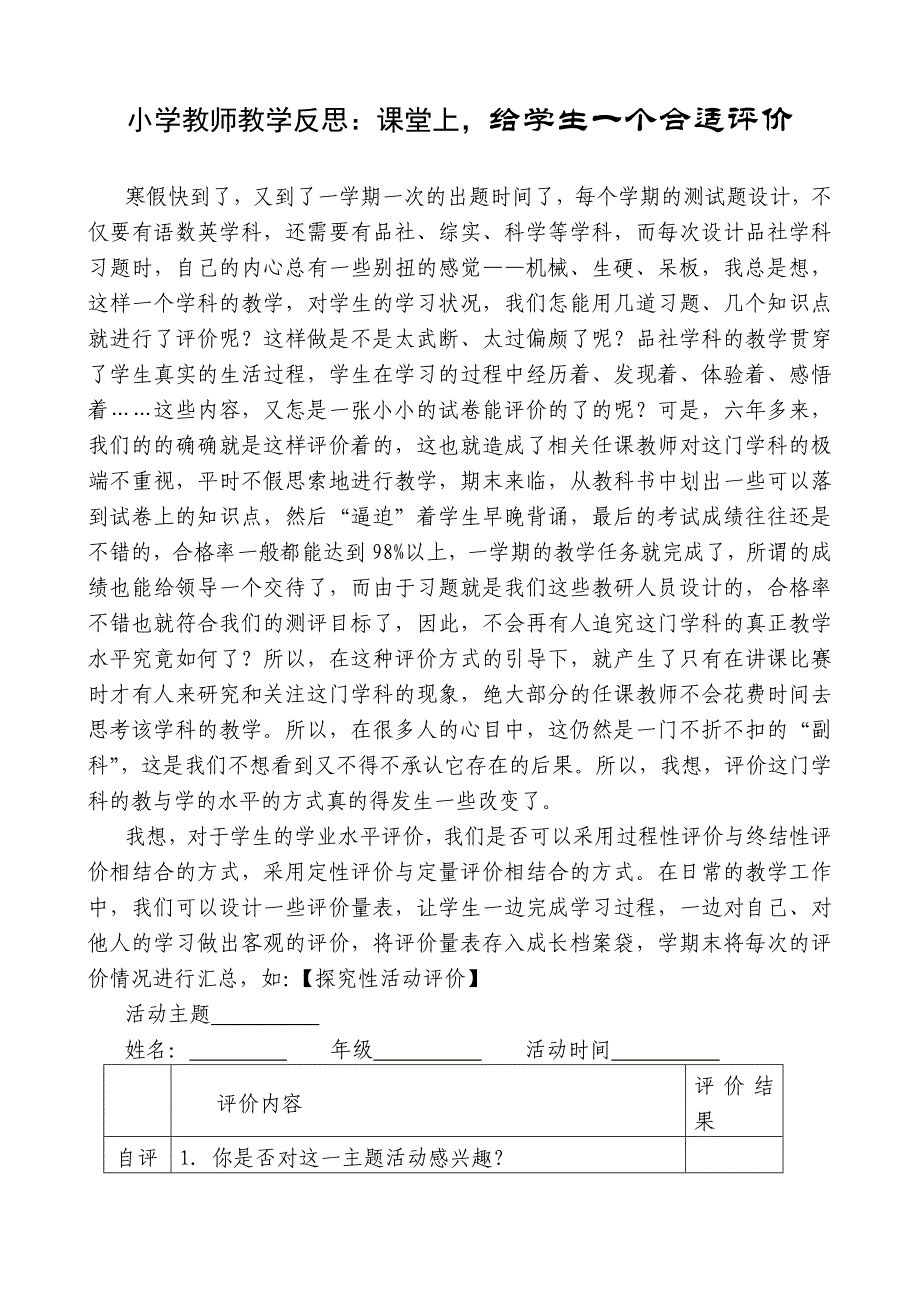 小学教师教学反思：课堂上，给学生一个合适评价
寒假快到了，又到了一学期一次的出题时间了，每个学期的测试题设计，不
仅要有语数英学科，还需要有品社、综实、科学等学科，而每次设计品社学科
习题时，自己的内心总有一些别扭的感觉——机械、生硬、呆板，我总是想，
这样一个学科的教学，对学生的学习状况，我们怎能用几道习题、几个知识点
就进行了评价呢？这样做是不是太武断、太过偏颇了呢？品社学科的教学贯穿
了学生真实的生活过程，学生在学习的过程中经历着、发现着、体验着、感悟
着……这些内容，又怎是一张小小的试卷能评价的了的呢？可是，六年多来，
我们的的确确就是这样评价着的，这也就造成了相关任课教师对这门学科的极
端不重视，平时不假思索地进行教学，期末来临，从教科书中划出一些可以落
到试卷上的知识点，然后“逼迫”着学生早晚背诵，最后的考试成绩往往还是
不错的，合格率一般都能达到98%以上，一学期的教学任务就完成了，所谓的成
绩也能给领导一个交待了，而由于习题就是我们这些教研人员设计的，合格率
不错也就符合我们的测评目标了，因此，不会再有人追究这门学科的真正教学
水平究竟如何了？所以，在这种评价方式的引导下，就产生了只有在讲课比赛
时才有人来研究和关注这门学科的现象，绝大部分的任课教师不会花费时间去
思考该学科的教学。所以，在很多人的心目中，这仍然是一门不折不扣的“副
科”，这是我们不想看到又不得不承认它存在的后果。所以，我想，评价这门学
科的教与学的水平的方式真的得发生一些改变了。
我想，对于学生的学业水平评价，我们是否可以采用过程性评价与终结性评
价相结合的方式，采用定性评价与定量评价相结合的方式。在日常的教学工作
中，我们可以设计一些评价量表，让学生一边完成学习过程，一边对自己、对
他人的学习做出客观的评价，将评价量表存入成长档案袋，学期末将每次的评
价情况进行汇总，如：【探究性活动评价】
活动主题__________
姓名：_________ 年级__________ 活动时间__________
评价内容 评价结
果
自评 1．你是否对这一主题活动感兴趣？